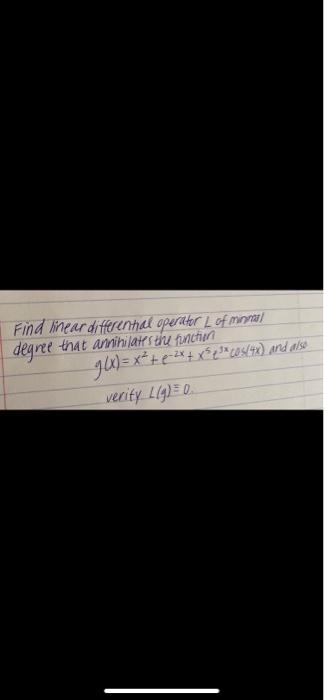 Find linear differential operator L of minimal
degree that anninilates the function
g(x) = x² + e^-2x + x⁵ e^3x cos(4x) and also
verify L(g) ≡ 0.